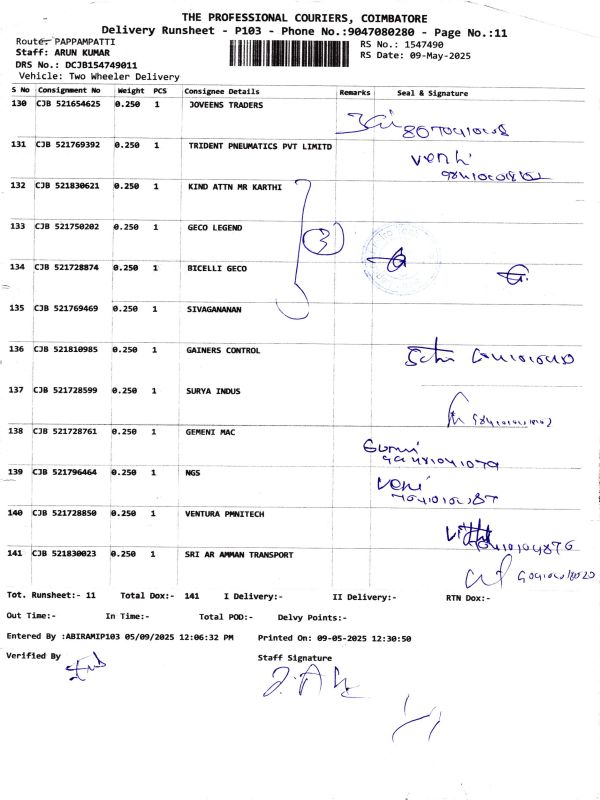 THE PROFESSIONAL COURIERS, COIMBATORE
Delivery Runsheet - P103 - Phone No.:9047080280 - Page No.:11
Route: PAPPAMPATTI
RS No.: 1547490
Staff: ARUN KUMAR
RS Date: 09-May-2025
DRS No.: DCJB154749011
Vehicle: Two Wheeler Delivery
S No Consignment No Weight PCS Consignee Details Remarks Seal & Signature
130 CJB 521654625 0.250 1 JOVEENS TRADERS
131 CJB 521769392 0.250 1 TRIDENT PNEUMATICS PVT LIMITD
132 CJB 521830621 0.250 1 KIND ATTN MR KARTHI
133 CJB 521750202 0.250 1 GECO LEGEND
3
134 CJB 521728874 0.250 1 BICELLI GECO
135 CJB 521769469 0.250 1 SIVAGANANAN
136 CJB 521810985 0.250 1 GAINERS CONTROL
137 CJB 521728599 0.250 1 SURYA INDUS
138 CJB 521728761 0.250 1 GEMENI MAC
139 CJB 521796464 0.250 1 NGS
140 CJB 521728850 0.250 1 VENTURA PMNITECH
141 CJB 521830023 0.250 1 SRI AR AMMAN TRANSPORT
Tot. Runsheet:- 11 Total Dox:- 141 I Delivery:- II Delivery:- RTN Dox:-
Out Time:- In Time:- Total POD:- Delvy Points:-
Entered By :ABIRAMIP103 05/09/2025 12:06:32 PM Printed On: 09-05-2025 12:30:50
Verified By Staff Signature